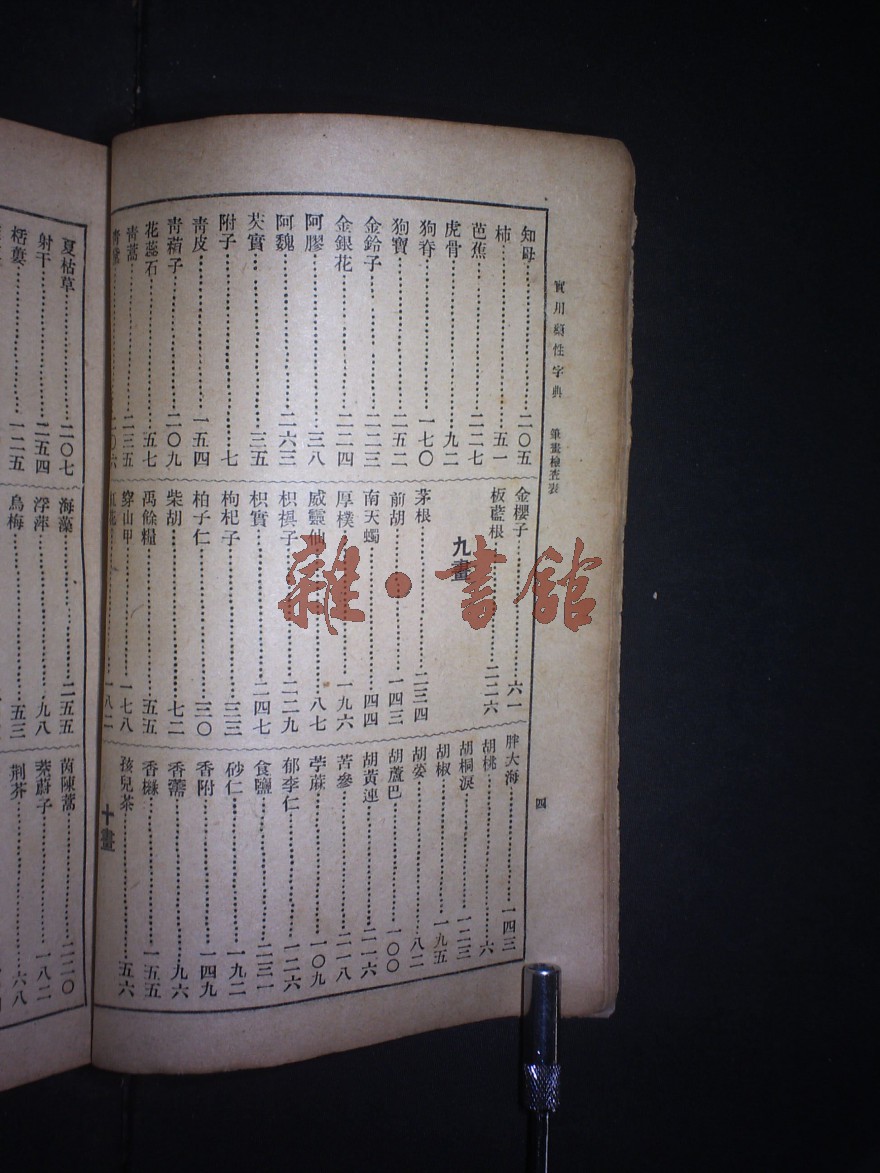 實用藥性字典 筆畫檢查表
四
知母 二〇五
柿 五一
芭蕉 二二七
虎骨 九二
狗脊 一七〇
狗寶 二五二
金鈴子 二二三
金銀花 二二四
阿膠 三八
阿魏 二六三
芡實 三五
附子 七
青皮 一五四
青葙子 二〇九
花蕊石 五七
青蒿 二三五
青黛 二〇六
金櫻子 六一
板藍根 二二六
九畫
茅根 二三四
前胡 一四三
南天蠋 四四
厚樸 一九六
威靈仙 八七
枳椇子 二二九
枳實 二四七
枸杞子 三三
柏子仁 三〇
柴胡 七二
禹餘糧 五五
穿山甲 一七八
紅花 一八二
胖大海 一四三
胡桃 六
胡桐淚 一二三
胡椒 一九五
胡荽 八二
胡蘆巴 一〇〇
胡黃連 二一六
苦參 二一八
苧蔴 一〇九
郁李仁 一二六
食鹽 二三一
砂仁 一九二
香附 一四九
香薷 九六
香櫞 一五五
孩兒茶 五六
十畫
夏枯草 二〇七
射干 二五四
栝蔞 一二五
海藻 二五五
浮萍 九八
烏梅 五三
茵陳蒿 二二〇
茺蔚子 一八二
荆芥 六八
雜·書館